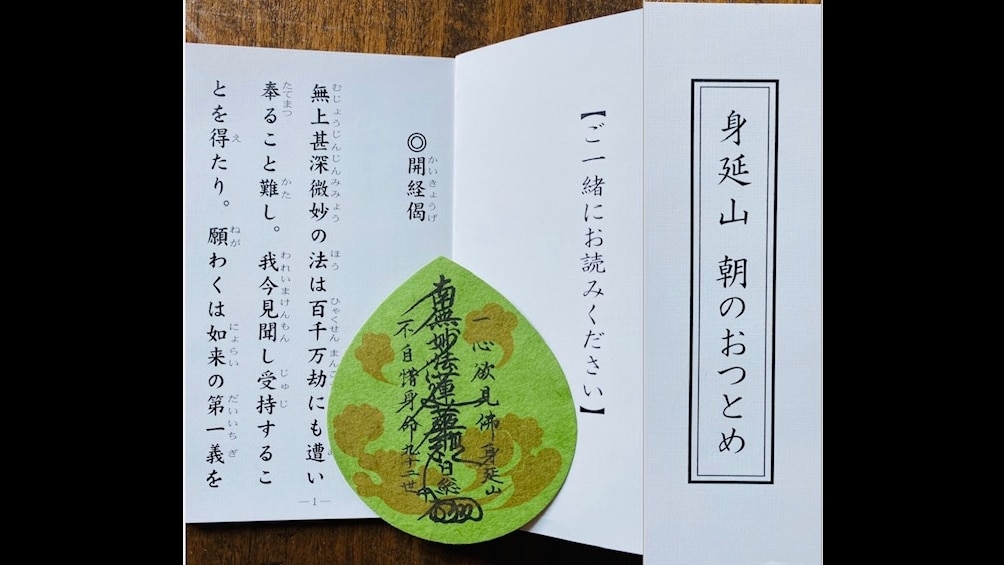 身延山 朝のおつとめ
【ご一緒にお読みください】
◎開経偈
かいきょうげ
無上甚深微妙の法は百千万劫にも遭い
むじょうじんじんみみょう ほう ひゃくせん まん
奉ること難し。我今見聞し受持するこ
たてまつ かた われいまけんもん じゅじ
とを得たり。願わくは如来の第一義を
え ねが にょらい だいいちぎ
—1—
一心欲見佛 身延山
南無妙法蓮華経 日総
不自惜身命 九十二世